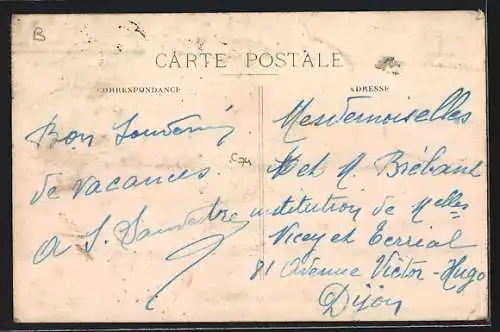 B
CARTE POSTALE
CORRESPONDANCE
ADRESSE
Bon Souvenir
de vacances.
C74
Mesdemoiselles
et M. Brébant
institution de Melles
Vicey et Terrial
81 Avenue Victor-Hugo
Dijon